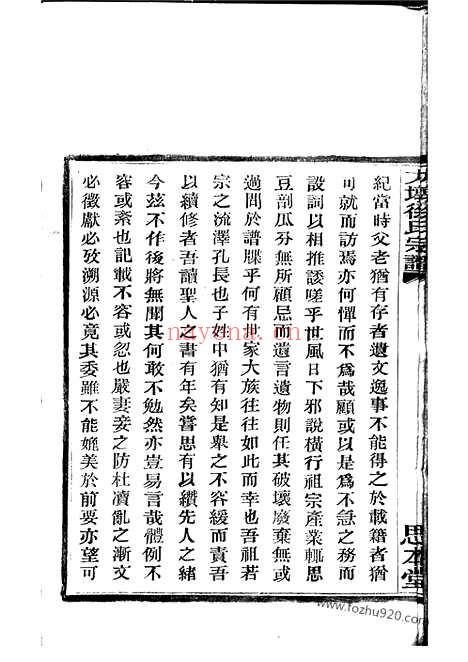 紀當時父老猶有存者遺文逸事不能得之於載籍者猶
可就而訪焉亦何憚而不爲哉顧或以是爲不急之務而
設詞以相推諉嗟乎世風日下邪說橫行祖宗產業輒思
豆剖瓜分無所顧忌而遺言遺物則任其破壞廢棄無或
過問於譜牒乎何有世家大族往往如此而幸也吾祖若
宗之流澤孔長也子姓中猶有知是舉之不容緩而責吾
以續修者吾讀聖人之書有年矣嘗思有以纘先人之緒
今茲不作後將無聞其何敢不勉然亦豈易言哉體例不
容或紊也記載不容或忽也嚴妻妾之防杜瀆亂之漸文
必徵獻必攷溯源必竟其委雖不能媲美於前要亦望可
後氏宗譜
思本堂
nayona.cn
www.fozhu920.com